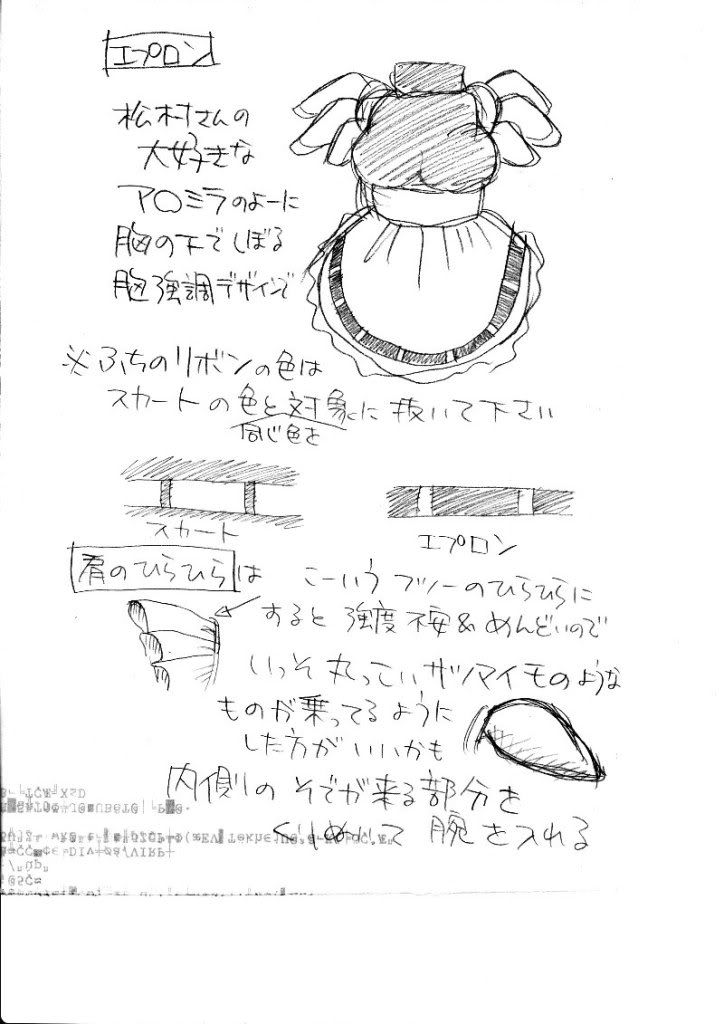 エプロン
松村さんの
大好きな
ア○ミラのよーに
胸の下でしぼる
胸強調デザインで
※ふちのリボンの色は
スカートの色と対象に抜いて下さい
同じ色を
スカート
エプロン
肩のひらひらは
こーいうフツーのひらひらに
すると強度不安&めんどいので
いっそ丸っこいサツマイモのような
ものが乗ってるように
した方がいいかも
内側のそでが来る部分を
くりぬいて腕を入れる